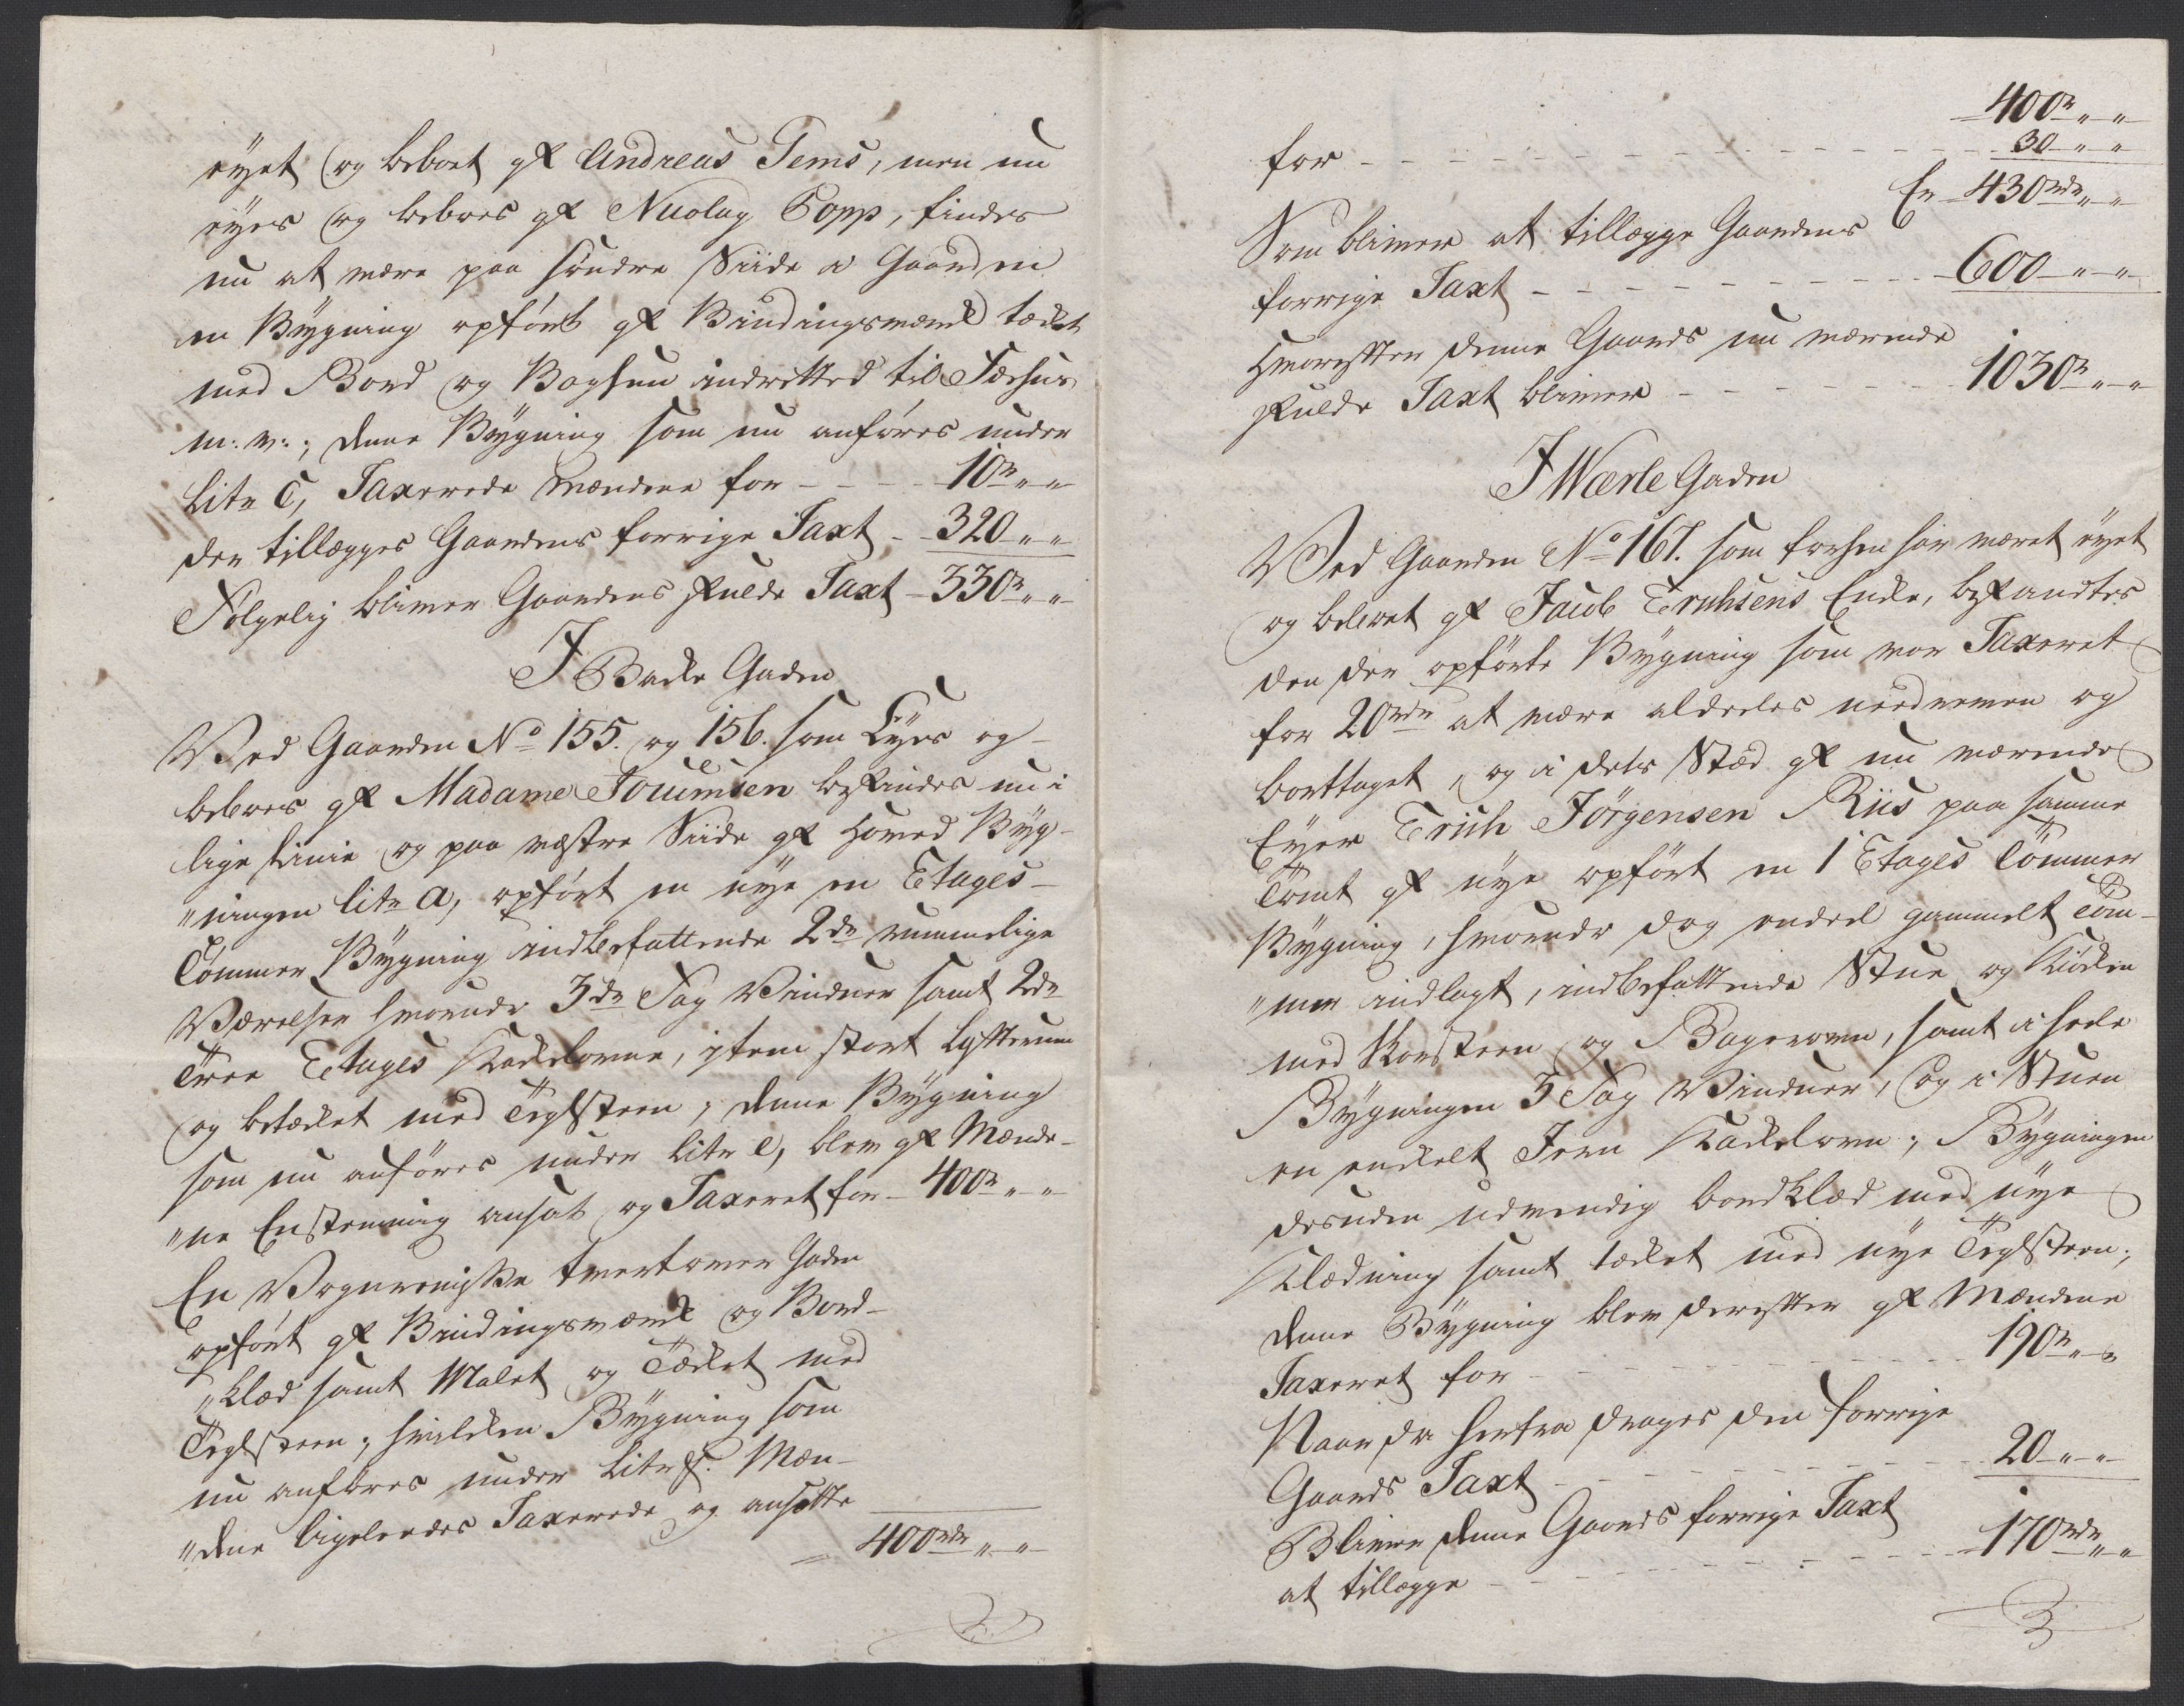 eyet og beboet af Andreas Jems, men nu
eyes og beboes af Nicolay Popp, findes
nu at være paa søndre Siide a Gaarden
en Bygning opført af Bindingsværck tæcket
med Bord og Baghun indrettet til Fæehuus
m: v:; denne Bygning som nu anføres under
Litr C, Taxerede Mændene for - - - 10 rd " "
der tillægges Gaardens forrige Taxt - 320 " "
Følgelig bliver Gaardens fulde Taxt - 330 rd " "
I Backe Gaden
Ved Gaarden No 155. og 156. som Eyes og
beboes af Madame Jouensen befindes nu i
lige Linie og paa vestre Siide af Hoved Byg-
"ningen Litr a, opført en nye en Etages
Tømmer Bygning indbefattende 2de rummelige
Værelser hvorudi 3de Fag Vinduer samt 2de
Tree Etages Kackelovne, item stort Lofterum
og betæcket med Teglsteen; denne Bygning
som nu anføres under Litr e, blev af Mænde-
"ne Enstemmig ansat og Taxeret for - 400 rd " "
En Vognremisse tvertover Gaden
opført af Bindingsværck og Bord-
"klæd samt Malet og Tæcket med
Teglsteen; hvilcken Bygning som
nu anføres under Litr f. Mæn-
"dene ligeledes Taxerede og ansatte
400 rdr " "
400 rd " "
for - - - 30 " "
Er 430 rdr " "
Som bliver at tillægge Gaardens
forrige Taxt - - - 600 " "
Hvorefter denne Gaards nu værende
fulde Taxt bliver - - - 1030 rd " "
I Wærle Gaden
Ved Gaarden No 167. som forhen har været eyet
og beboet af Jacob Erichsens Encke, befandtes
den der opførte Bygning som var Taxeret
for 20 rdr at være aldeeles nedreven og
borttaget, og i dets Stæd af nu værende
Eyer Erich Jörgensen Riis paa samme
Tomt af nye opført en 1 Etages Tømmer
Bygning, hvorudi dog endeel gammelt Tøm-
"mer indlagt, indbefattende Stue og Kiöcken
med Korsteen og Bageroven, samt i hele
Bygningen 3 Fag Vinduer, og i Stuen
en enckelt Jern Kackelovn; Bygningen
desuden udvendig bordklæd med nye
Klædning samt tæcket med nye Teglsteen;
denne Bygning blev derefter af Mændene
Taxeret for - - - 190 rd " "
Naar da herfra drages den forrige
Gaards Taxt - - - 20 " "
Bliver denne Gaards forrige Taxt
at tillægge - - - 170 rdr " "